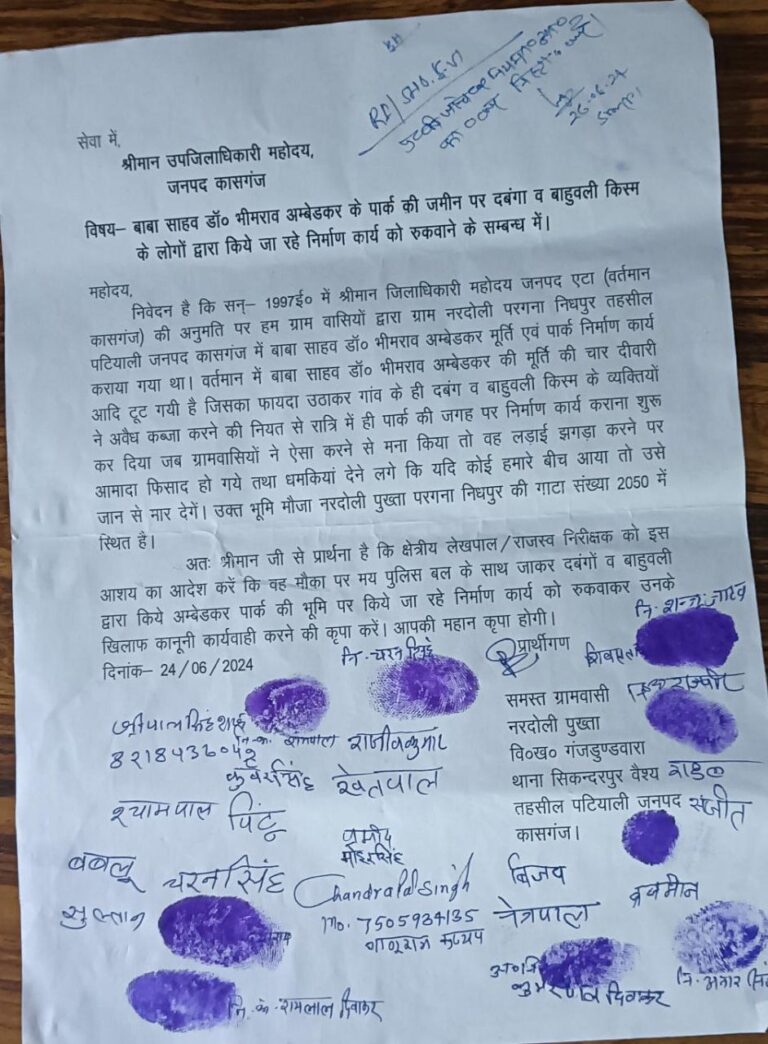 RI/SHO. S.V
26.06.24
सेवा में,
श्रीमान उपजिलाधिकारी महोदय,
जनपद कासगंज
विषय– बाबा साहव डॉ० भीमराव अम्बेडकर के पार्क की जमीन पर दबंगा व बाहुवली किस्म
के लोगों द्वारा किये जा रहे निर्माण कार्य को रुकवाने के सम्बन्ध में।
महोदय,
निवेदन है कि सन्– 1997ई० में श्रीमान जिलाधिकारी महोदय जनपद एटा (वर्तमान
कासगंज) की अनुमति पर हम ग्राम वासियों द्वारा ग्राम नरदोली परगना निधपुर तहसील
पटियाली जनपद कासगंज में बाबा साहव डॉ० भीमराव अम्बेडकर मूर्ति एवं पार्क निर्माण कार्य
कराया गया था। वर्तमान में बाबा साहव डॉ० भीमराव अम्बेडकर की मूर्ति की चार दीवारी
आदि टूट गयी है जिसका फायदा उठाकर गांव के ही दबंग व बाहुवली किस्म के व्यक्तियों
ने अवैध कब्जा करने की नियत से रात्रि में ही पार्क की जगह पर निर्माण कार्य कराना शुरू
कर दिया जब ग्रामवासियों ने ऐसा करने से मना किया तो वह लड़ाई झगड़ा करने पर
आमादा फिसाद हो गये तथा धमकियां देने लगे कि यदि कोई हमारे बीच आया तो उसे
जान से मार देगें। उक्त भूमि मौजा नरदोली पुख्ता परगना निधपुर की गाटा संख्या 2050 में
स्थित है।
अतः श्रीमान जी से प्रार्थना है कि क्षेत्रीय लेखपाल/राजस्व निरीक्षक को इस
आशय का आदेश करें कि वह मौका पर मय पुलिस बल के साथ जाकर दबंगों व बाहुवली
द्वारा किये अम्बेडकर पार्क की भूमि पर किये जा रहे निर्माण कार्य को रुकवाकर उनके
खिलाफ कानूनी कार्यवाही करने की कृपा करें। आपकी महान कृपा होगी।
दिनांक– 24/06/2024
प्रार्थीगण
नि. चरन सिंह
समस्त ग्रामवासी
नरदोली पुख्ता
वि०ख० गंजडुण्डवारा
थाना सिकन्दरपुर वैश्य
तहसील पटियाली जनपद
कासगंज।
संजीत
राजीव कुमार
कुवरसिंह
खेतपाल
श्यामपाल
पिंटू
बबलू
चरन सिंह
Chandrapal Singh
Mo. 7505934135
बिजय
नेत्रपाल
सुल्तान
नि. के. रामलाल दिवाकर